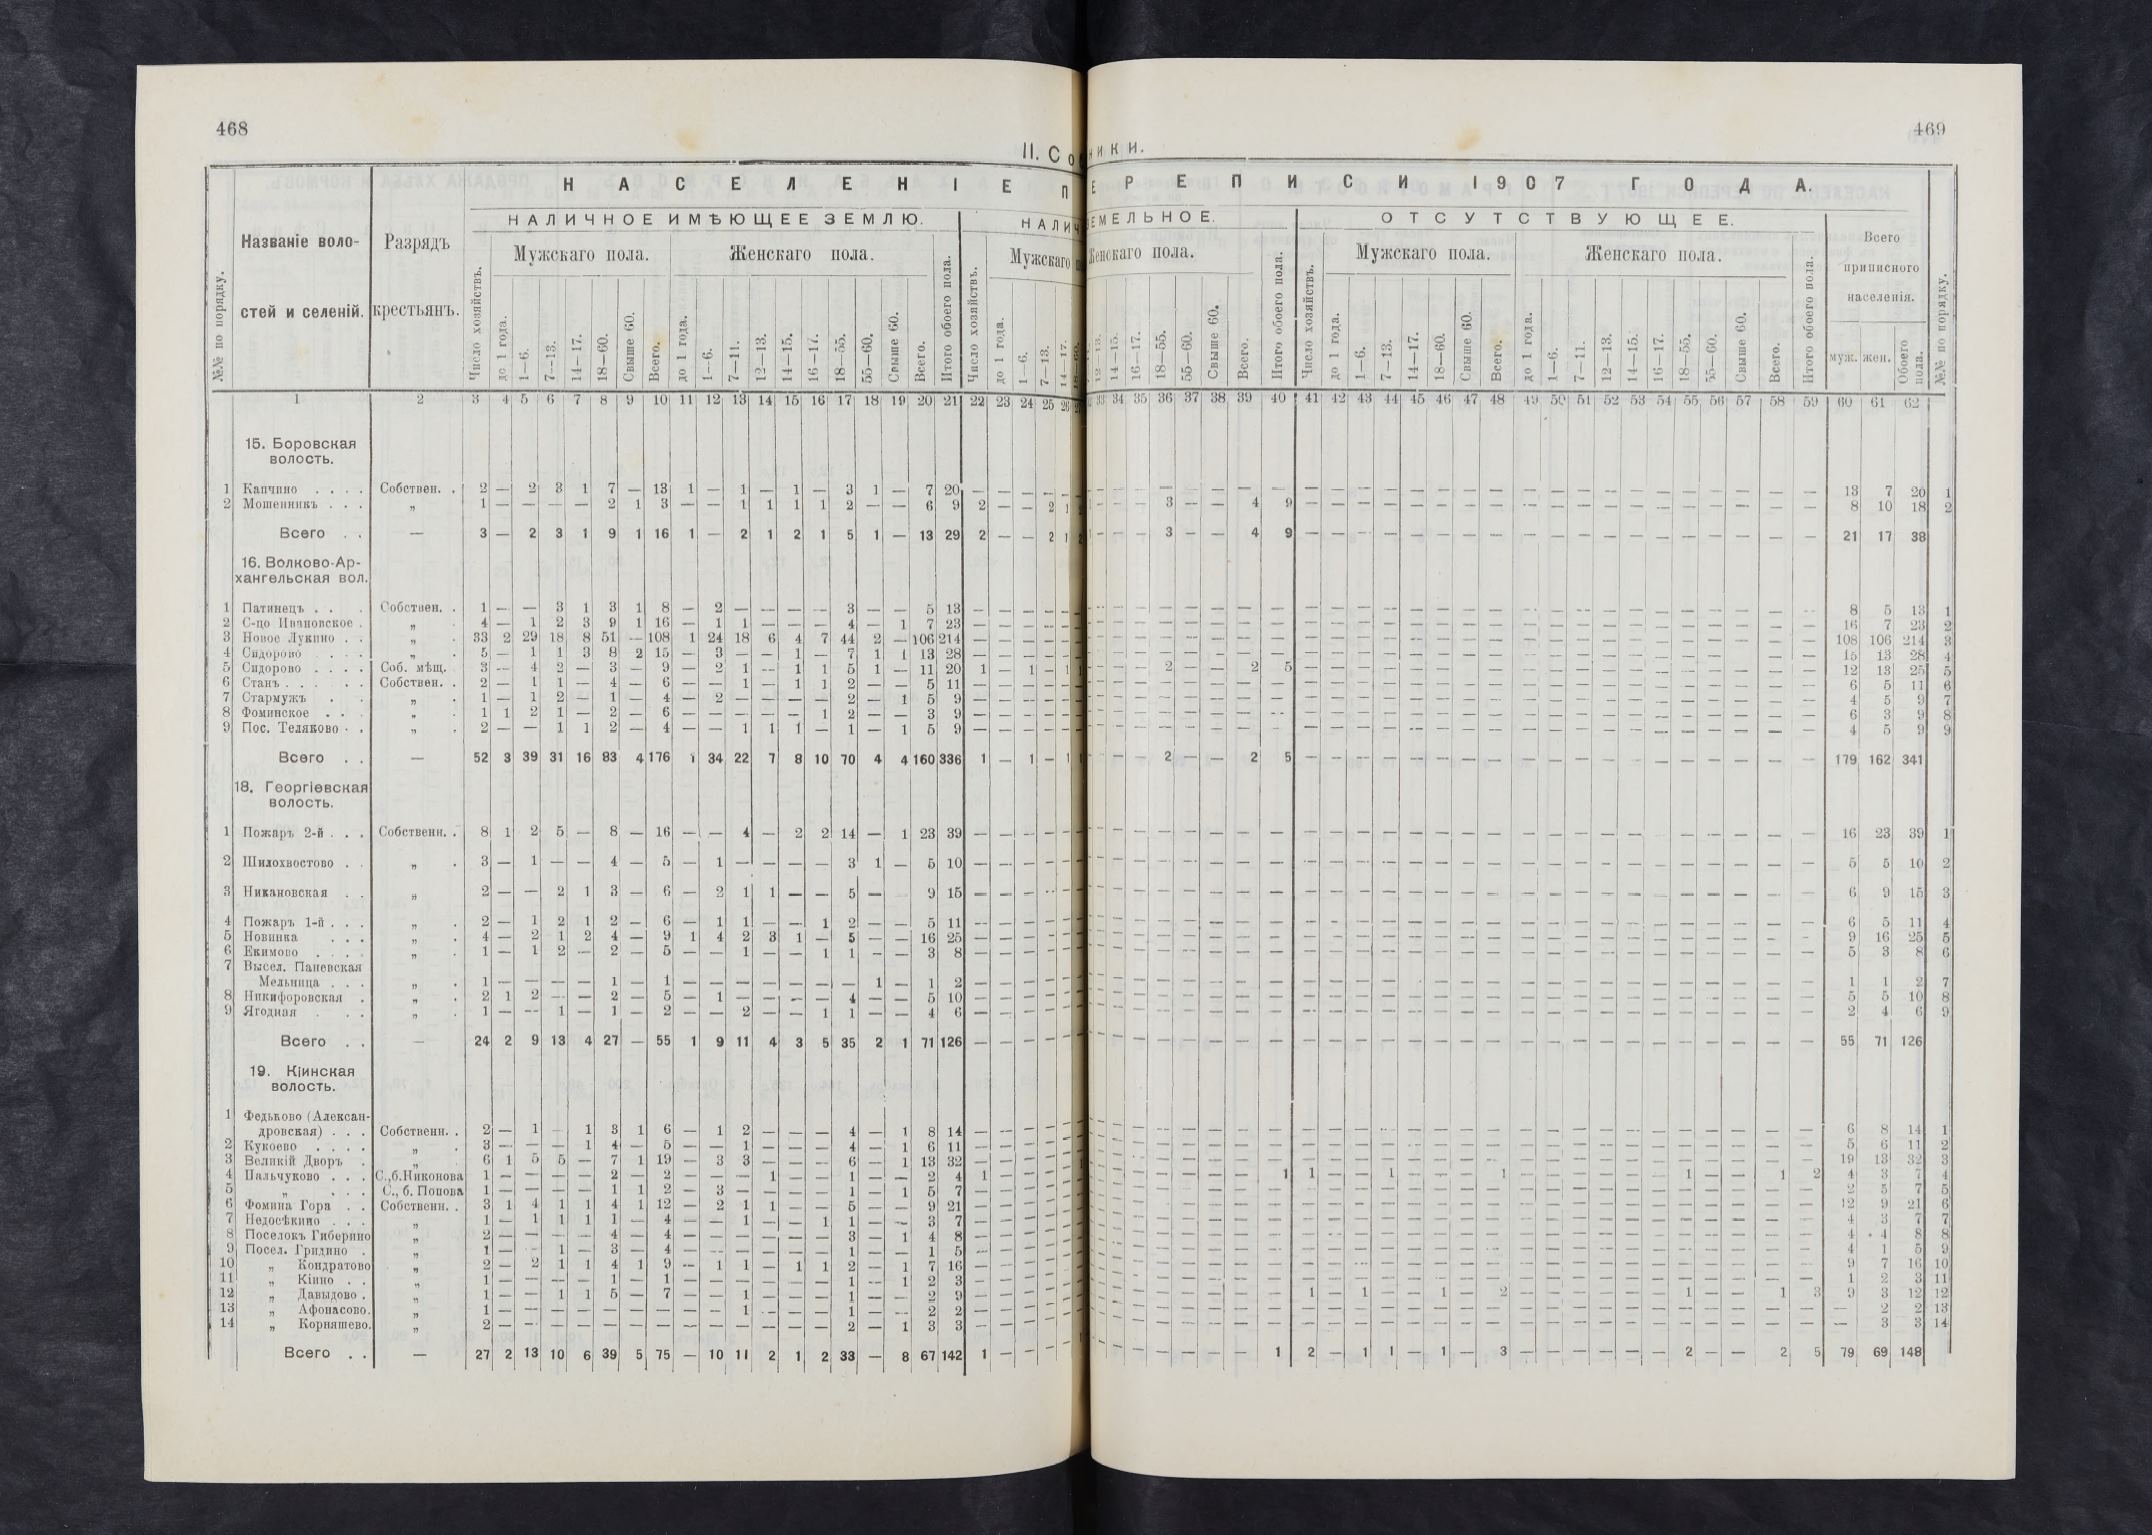 468
469
II. Со
ники.
НАСЕЛЕНІЕ П
ЕРЕПИСИ 1907 ГОДА.
№№ по порядку.
Названіе воло-
стей и селеній.
Разрядъ
крестьянъ.
НАЛИЧНОЕ ИМѢЮЩЕЕ ЗЕМЛЮ.
НАЛИЧ
ЗЕМЕЛЬНОЕ.
ОТСУТСТВУЮЩЕЕ.
Всего
приписного
населенія.
Число хозяйствъ.
Мужскаго пола.
Женскаго пола.
Итого обоего пола.
Число хозяйствъ.
Мужскаго
Женскаго пола.
Итого обоего пола.
Число хозяйствъ.
Мужскаго пола.
Женскаго пола.
Итого обоего пола.
муж. жен. Обоего пола.
№№ по порядку.
до 1 года. 1—6. 7—13. 14—17. 18—60. Свыше 60. Всего.
до 1 года. 1—6. 7—11. 12—13. 14—15. 16—17. 18—55. 55—60. Свыше 60. Всего.
до 1 года. 1—6. 7—13. 14—17.
12—13. 14—15. 16—17. 18—55. 55—60. Свыше 60. Всего.
до 1 года. 1—6. 7—13. 14—17. 18—60. Свыше 60. Всего.
до 1 года. 1—6. 7—11. 12—13. 14—15. 16—17. 18—55. 55—60. Свыше 60. Всего.
1 2 3 4 5 6 7 8 9 10 11 12 13 14 15 16 17 18 19 20 21 22 23 24 25 26 33 34 35 36 37 38 39 40 41 42 43 44 45 46 47 48 49 50 51 52 53 54 55 56 57 58 59 60 61 62
15. Боровская
волость.
1 Капчино . . . . Собствен. . 2 — 2 3 1 7 — 13 1 — 1 — 1 — 3 1 — 7 20 — — — — — — — — — — — — — — — — — — — — — — — — — — — — — — — — 13 7 20 1
2 Мошенникъ . . . „ 1 — — — — 2 1 3 — — 1 1 1 1 2 — — 6 9 2 — — 2 1 — — — 3 — — 4 9 — — — — — — — — — — — — — — — — — — — 8 10 18 2
Всего . . — 3 — 2 3 1 9 1 16 1 — 2 1 2 1 5 1 — 13 29 2 — — 2 1 — — — 3 — — 4 9 — — — — — — — — — — — — — — — — — — — 21 17 38
16. Волково-Ар-
хангельская вол.
1 Патинецъ . . . Собствен. . 1 — — 3 1 3 1 8 — 2 — — — — 3 — — 5 13 — — — — — — — — — — — — — — — — — — — — — — — — — — — — — — — — 8 5 13 1
2 С-цо Ивановское . „ . 4 — 1 2 3 9 1 16 — 1 1 — — — 4 — 1 7 23 — — — — — — — — — — — — — — — — — — — — — — — — — — — — — — — — 16 7 23 2
3 Новое Лукино . . „ . 33 2 29 18 8 51 — 108 1 24 18 6 4 7 44 2 — 106 214 — — — — — — — — — — — — — — — — — — — — — — — — — — — — — — — — 108 106 214 3
4 Сидорово . . . „ . 5 — 1 1 3 8 2 15 — 3 — — 1 — 7 1 1 13 28 — — — — — — — — — — — — — — — — — — — — — — — — — — — — — — — — 15 13 28 4
5 Сидорово . . . . Соб. мѣщ. 3 — 4 2 — 3 — 9 — 2 1 — 1 1 5 1 — 11 20 1 — 1 — 1 — — — 2 — — 2 5 — — — — — — — — — — — — — — — — — — — 12 13 25 5
6 Станъ . . . . . Собствен. . 2 — 1 1 — 4 — 6 — — 1 — 1 1 2 — — 5 11 — — — — — — — — — — — — — — — — — — — — — — — — — — — — — — — — 6 5 11 6
7 Стармужъ . . „ . 1 — 1 2 — 1 — 4 — 2 — — — — 2 — 1 5 9 — — — — — — — — — — — — — — — — — — — — — — — — — — — — — — — — 4 5 9 7
8 Фоминское . . . „ . 1 1 2 1 — 2 — 6 — — — — — 1 2 — — 3 9 — — — — — — — — — — — — — — — — — — — — — — — — — — — — — — — — 6 3 9 8
9 Пос. Теляково . . „ . 2 — — 1 1 2 — 4 — — 1 1 1 — 1 — 1 5 9 — — — — — — — — — — — — — — — — — — — — — — — — — — — — — — — — 4 5 9 9
Всего . . — 52 3 39 31 16 83 4 176 1 34 22 7 8 10 70 4 4 160 336 1 — 1 — 1 — — — 2 — — 2 5 — — — — — — — — — — — — — — — — — — — 179 162 341
18. Георгіевская
волость.
1 Пожаръ 2-й . . . Собственн. . 8 1 2 5 — 8 — 16 — — 4 — 2 2 14 — 1 23 39 — — — — — — — — — — — — — — — — — — — — — — — — — — — — — — — — 16 23 39 1
2 Шилохвостово . . „ . 3 — 1 — — 4 — 5 — 1 — — — — 3 1 — 5 10 — — — — — — — — — — — — — — — — — — — — — — — — — — — — — — — — 5 5 10 2
3 Никановская . . „ 2 — — 2 1 3 — 6 — 2 1 1 — — 5 — 9 15 — — — — — — — — — — — — — — — — — — — — — — — — — — — — — — — — 6 9 15 3
4 Пожаръ 1-й . . . „ . 2 — 1 2 1 2 — 6 — 1 1 — — 1 2 — — 5 11 — — — — — — — — — — — — — — — — — — — — — — — — — — — — — — — — 6 5 11 4
5 Новинка . . . „ . 4 — 2 1 2 4 — 9 1 4 2 3 1 — 5 — — 16 25 — — — — — — — — — — — — — — — — — — — — — — — — — — — — — — — — 9 16 25 5
6 Екимово . . . . „ . 1 — 1 2 — 2 — 5 — — 1 — — 1 1 — — 3 8 — — — — — — — — — — — — — — — — — — — — — — — — — — — — — — — — 5 3 8 6
7 Высел. Паневская
Мельница . . . „ . 1 — — — — 1 — 1 — — — — — — — 1 — 1 2 — — — — — — — — — — — — — — — — — — — — — — — — — — — — — — — — 1 1 2 7
8 Никифоровская . „ . 2 1 2 — — 2 — 5 — 1 — — — — 4 — — 5 10 — — — — — — — — — — — — — — — — — — — — — — — — — — — — — — — — 5 5 10 8
9 Ягодная . . . „ . 1 — — 1 — 1 — 2 — — 2 — — 1 1 — — 4 6 — — — — — — — — — — — — — — — — — — — — — — — — — — — — — — — — 2 4 6 9
Всего . . — 24 2 9 13 4 27 — 55 1 9 11 4 3 5 35 2 1 71 126 — — — — — — — — — — — — — — — — — — — — — — — — — — — — — — — — 55 71 126
19. Кіинская
волость.
1 Федьково (Алексан-
дровская) . . . Собственн. . 2 — 1 — 1 3 1 6 — 1 2 — — — 4 — 1 8 14 — — — — — — — — — — — — — — — — — — — — — — — — — — — — — — — — 6 8 14 1
2 Кукоево . . . . „ . 3 — — — 1 4 — 5 — — 1 — — — 4 — 1 6 11 — — — — — — — — — — — — — — — — — — — — — — — — — — — — — — — — 5 6 11 2
3 Великій Дворъ . „ 6 1 5 5 — 7 1 19 — 3 3 — — — 6 — 1 13 32 — — — — — — — — — — — — — — — — — — — — — — — — — — — — — — — — 19 13 32 3
4 Пальчуково . . . С.,б.Никонова 1 — — — — 2 — 2 — — — 1 — — 1 — — 2 4 1 — — — — — — — — — — — 1 1 — — 1 — — — 1 — — — — — — 1 — — 1 2 4 3 7 4
5 „ . . . С., б. Попова 1 — — — — 1 1 2 — 3 — — — — 1 — 1 5 7 — — — — — — — — — — — — — — — — — — — — — — — — — — — — — — — — 2 5 7 5
6 Фомина Гора . . Собственн. . 3 1 4 1 1 4 1 12 — 2 1 1 — — 5 — — 9 21 — — — — — — — — — — — — — — — — — — — — — — — — — — — — — — — — 12 9 21 6
7 Недосѣкино . . . „ 1 — 1 1 1 1 — 4 — — 1 — — 1 1 — — 3 7 — — — — — — — — — — — — — — — — — — — — — — — — — — — — — — — — 4 3 7 7
8 Поселокъ Гиберино „ 2 — — — — 4 — 4 — — — — — — 3 — 1 4 8 — — — — — — — — — — — — — — — — — — — — — — — — — — — — — — — — 4 4 8 8
9 Посел. Гридино . „ 1 — — 1 — 3 — 4 — — — — — — 1 — — 1 5 — — — — — — — — — — — — — — — — — — — — — — — — — — — — — — — — 4 1 5 9
10 „ Кондратово „ 2 — 2 1 1 4 1 9 — 1 1 — 1 1 2 — 1 7 16 — — — — — — — — — — — — — — — — — — — — — — — — — — — — — — — — 9 7 16 10
11 „ Кіино . . „ 1 — — — — 1 — 1 — — — — — — 1 — 1 2 3 — — — — — — — — — — — — — — — — — — — — — — — — — — — — — — — — 1 2 3 11
12 „ Давыдово . „ 1 — — 1 1 5 — 7 — — 1 — — — 1 — — 2 9 — — — — — — — — — — — — 1 — 1 — — 1 — 2 — — — — — — 1 — — 1 3 9 3 12 12
13 „ Афонасово. „ 1 — — — — — — — — — 1 — — — 1 — — 2 2 — — — — — — — — — — — — — — — — — — — — — — — — — — — — — — — — — 2 2 13
14 „ Корняшево. „ 2 — — — — — — — — — — — — — 2 — 1 3 3 — — — — — — — — — — — — — — — — — — — — — — — — — — — — — — — — — 3 3 14
Всего . . — 27 2 13 10 6 39 5 75 — 10 11 2 1 2 33 — 8 67 142 1 — — — — — — — — — — — 1 2 — 1 1 — 1 — 3 — — — — — — 2 — — 2 5 79 69 148